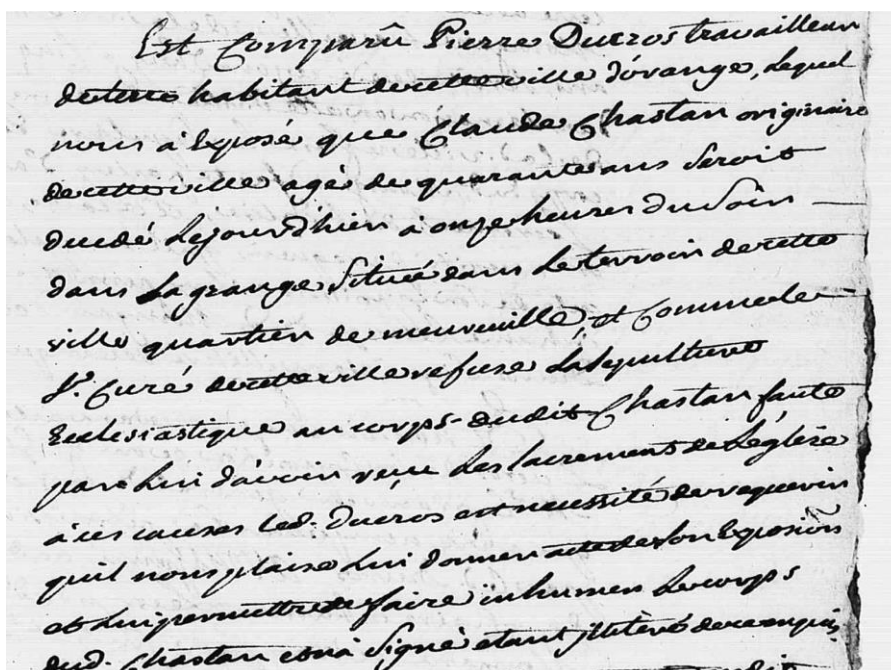 Est Comparû Pierre Ducros travailleur
deterre habitant decetteville d'orange, Lequel
nous à Exposé que Claude Chastan originaire
decetteville agé de quarante ans Seroit
decedé Lejour d'hier à onze heures du Soir
dans La grange Situéé dans Leterroir decette
ville quartier de meureuille, et Comme le
Sr. Curé decetteville refuse La Sepulture
Ecclesiastique au corps dudit Chastan faute
par Lui d'avoir reçu Les Sacrements de L'églize
à ces causes led. Ducros est necessité de requerir
quil nous plaise Lui donner acte de son Exposiõn
et Lui permettre de faire inhumer Le corps
dud. Chastan et n'a Signé etant jlliteré de ce enquis